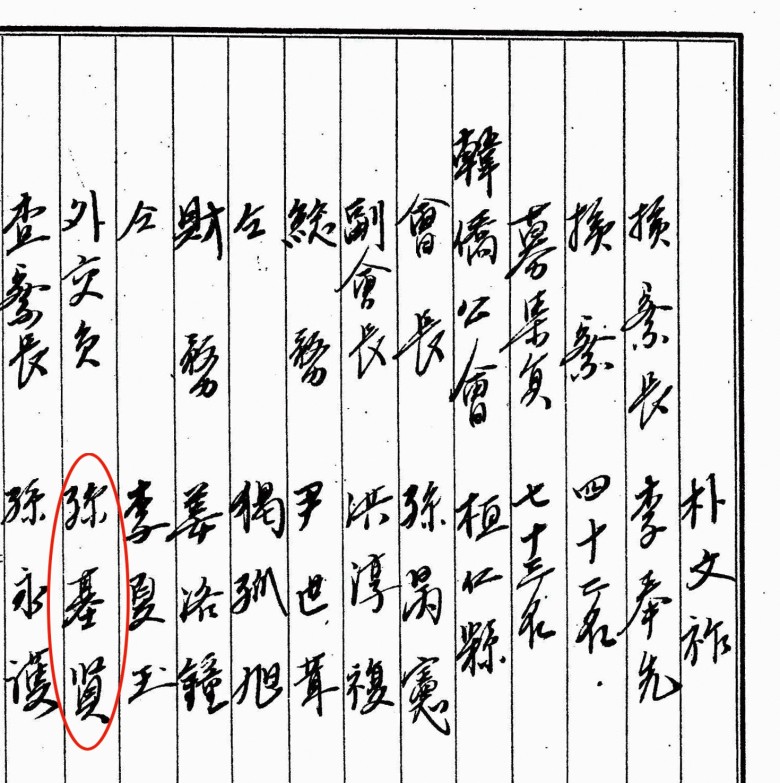 朴文祚
撿察長 李奉先
撿察 四十二名
募集員 七十三名
韓僑公會 桓仁縣
會長 孫昺憲
副會長 洪淳複
総務 尹世茸
仝 獨孤旭
財務 姜洛鐘
仝 李夏玉
外交員 孫基賢
查察長 孫永護